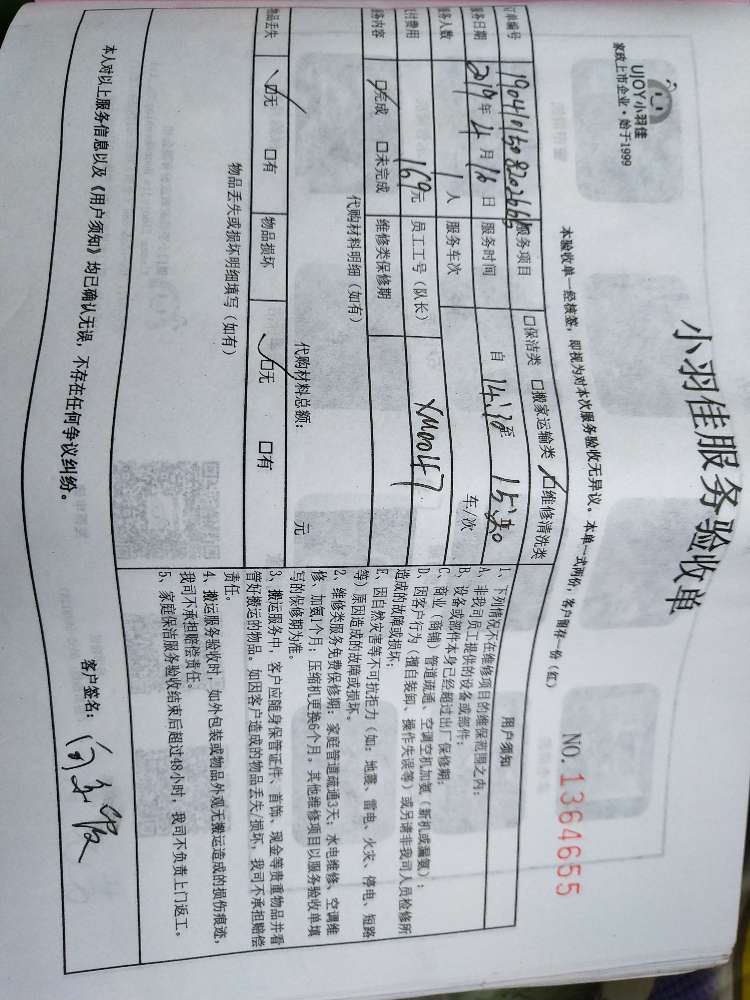 UJOY小羽佳
家政上市企业·始于1999
小羽佳服务验收单
NO.1364655
本验收单一经核签，即视为对本次服务验收无异议。本单一式两份，客户留存一份（红）
订单编号
服务项目 口保洁类 口搬家运输类 口维修清洗类
服务日期 2019年4月16日 服务时间 自14:30至
服务人数 1人 服务车次 车/次
支付费用 169元 员工工号（队长） XM0047
服务内容 口完成 口未完成 维修类保修期
代购材料明细（如有）
代购材料总额： 元
物品丢失 口无 口有 物品损坏 口无 口有
物品丢失或损坏明细填写（如有）
用户须知
1、下列情况不在维修项目的维保范围之内：
A、非我司员工提供的设备或部件；
B、设备或部件本身已经超过出厂保修期；
C、商业（商铺）管道疏通、空调空机加氨（新机或漏氨）；
D、因客户行为（擅自装卸、操作失误等）或另请非我司人员检修所
造成的故障或损坏；
E、因自然灾害等不可抗拒力（如：地震、雷电、火灾、停电、短路
等）原因造成的故障或损坏。
2、维修类服务免费保修期：家庭管道疏通3天；水电维修、空调维
修、加氨1个月；压缩机更换6个月。其他维修项目以服务验收单填
写的保修期为准。
3、搬运服务中，客户应随身保管证件、首饰、现金等贵重物品并看
管好搬运的物品。如因客户造成的物品丢失/损坏，我司不承担赔偿
责任。
4、搬运服务验收时，如外包装或物品外观无搬运造成的损伤痕迹，
我司不承担赔偿责任。
5、家庭保洁服务验收结束后超过48小时，我司不负责上门返工。
本人对以上服务信息以及《用户须知》均已确认无误，不存在任何争议纠纷。
客户签名：